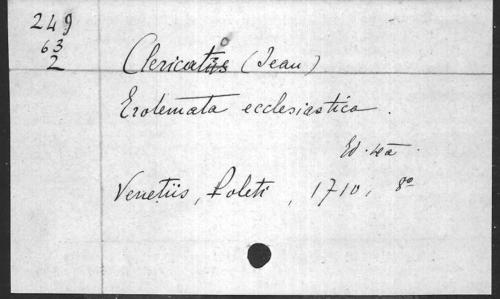 249
63
2
Clericato (Jean)
Erotemata ecclesiastica.
Ed. 4a.
Venetiis, Poleti, 1710, 8º